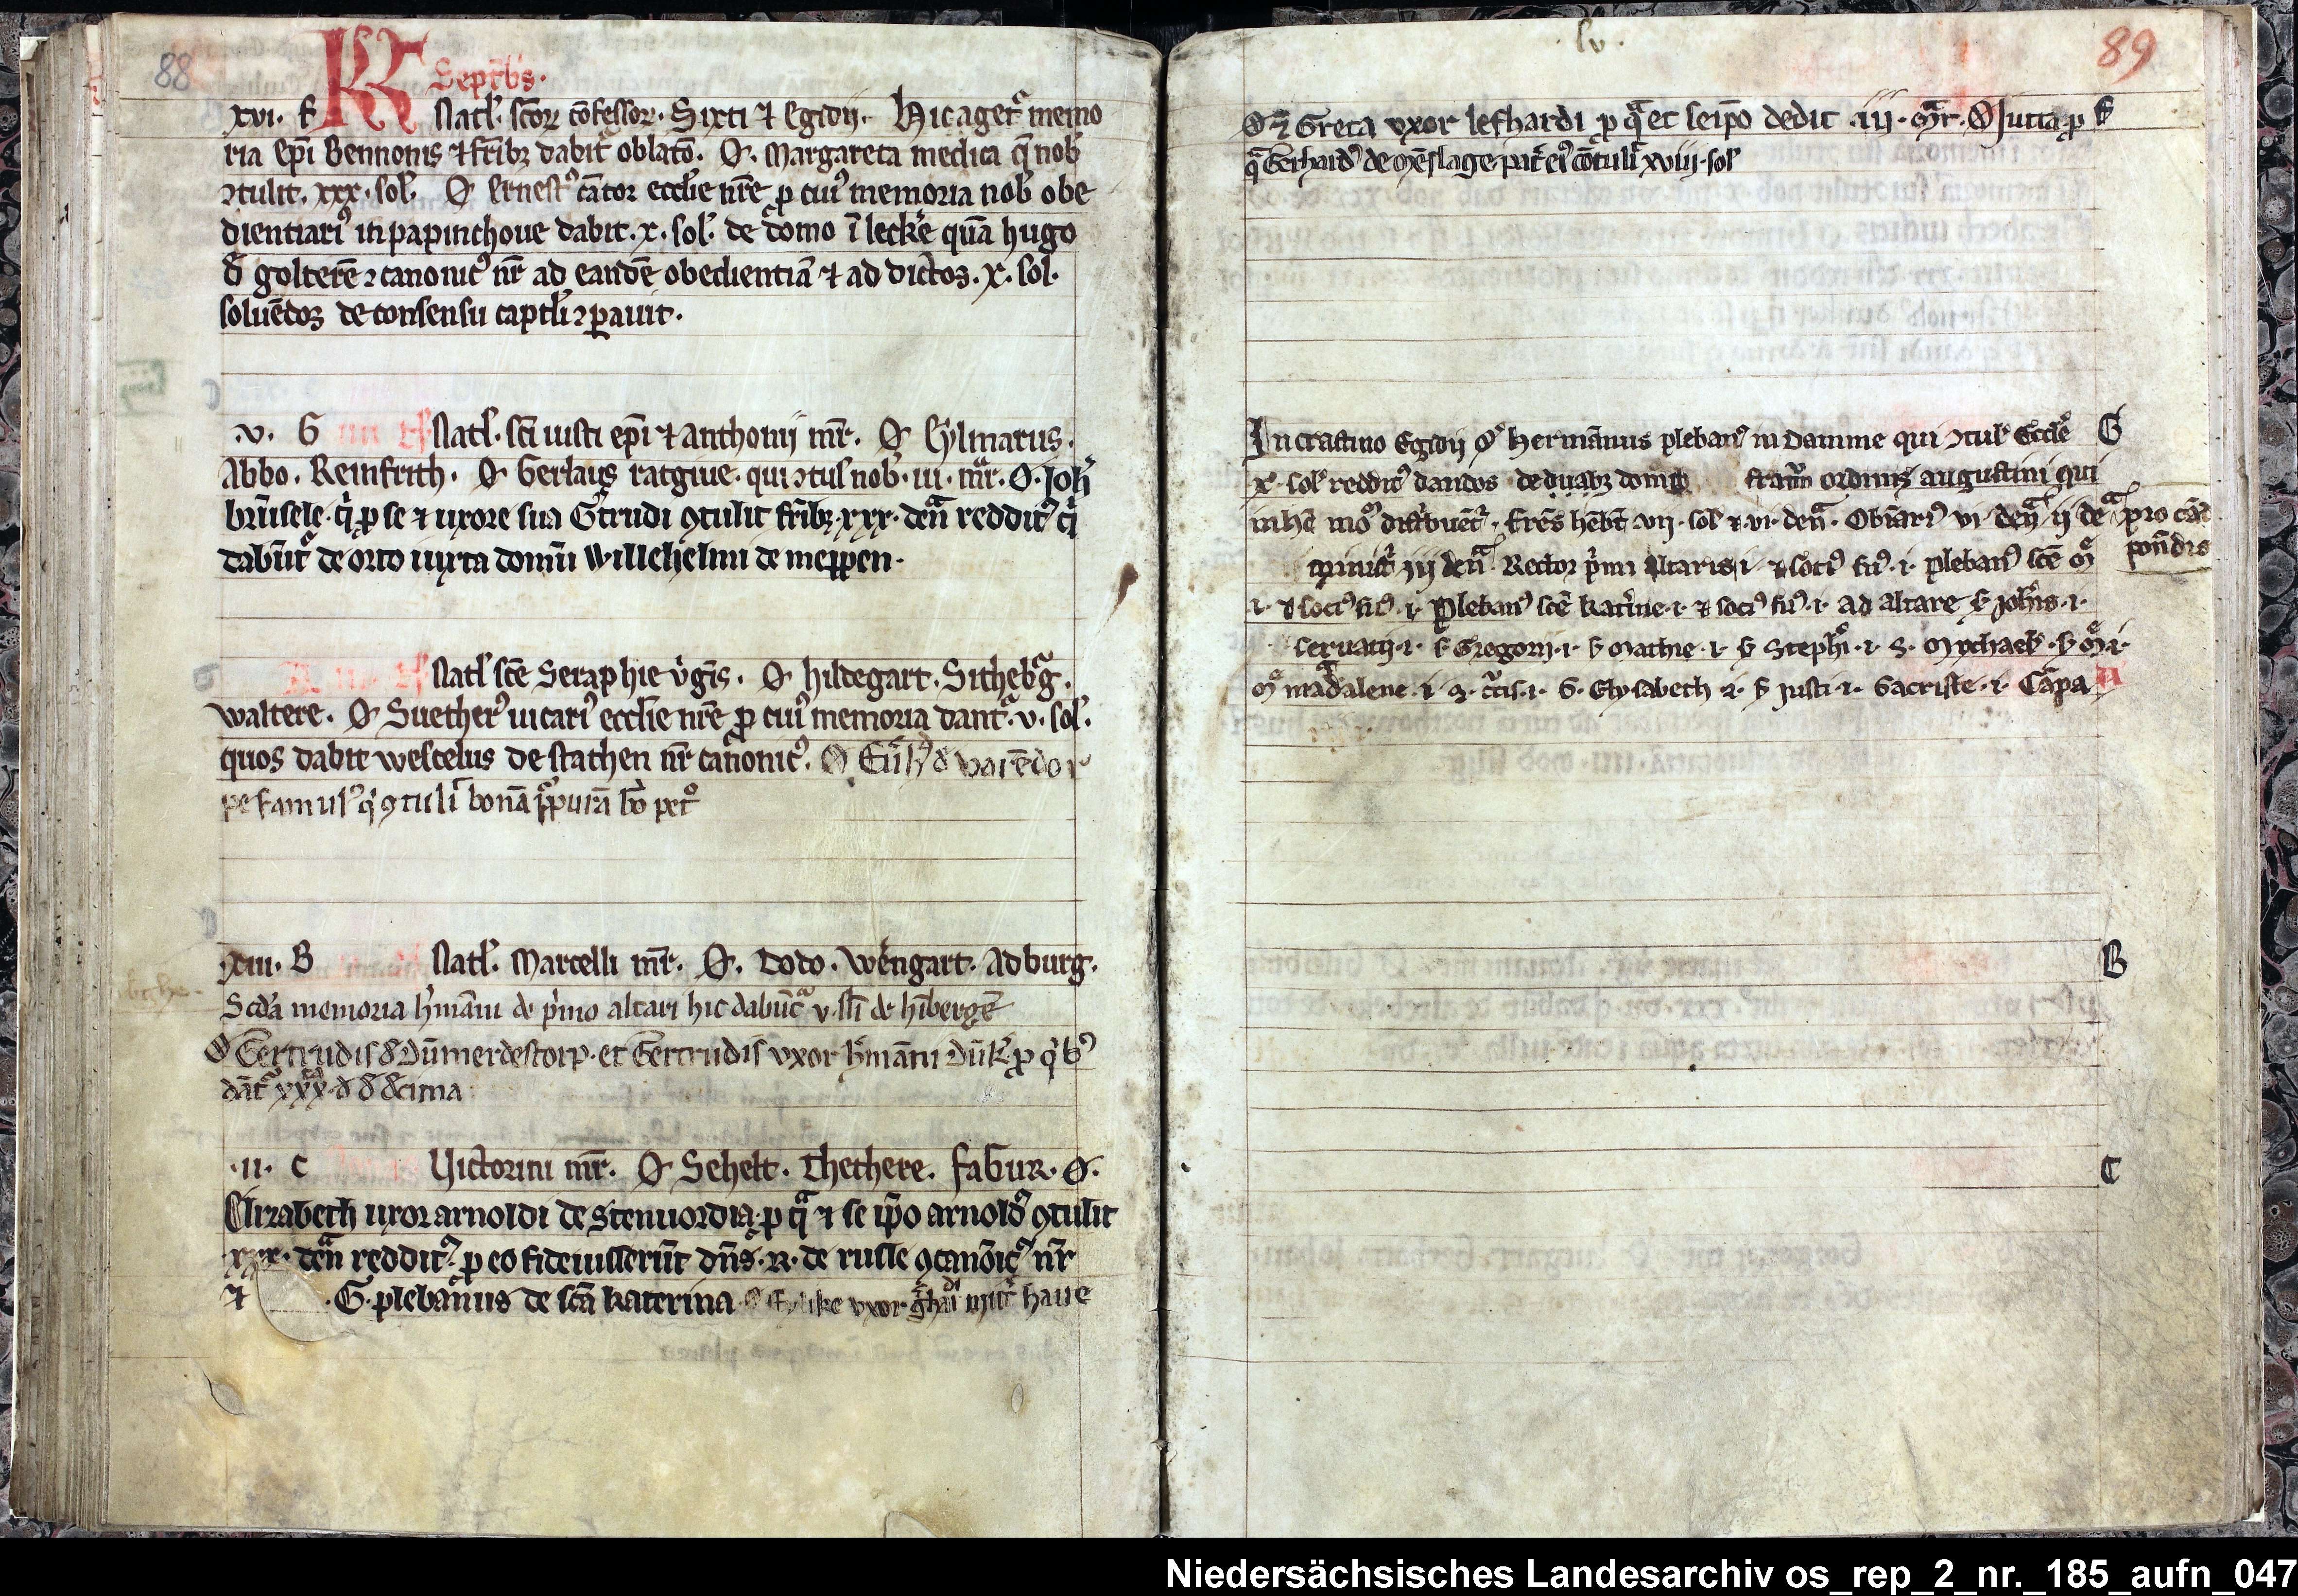 88
KL Septẽbs.
xvi. F Natl̛. sc̃oꝝ cõfessoꝝ. Sixti ⁊ Egidij. Hic agetᷓ memo
ria ep̃i Bennonis ⁊ fr̃ibꝫ dabitᷓ oblatõ. O. Margareta medica q̃ nob̛
ↄtulit. xxx. sol̛. O Ernestꝰ cãtor eccl̃ie nr̃e ꝓ cuiꝰ memoria nob̛ obe
dientiariꝰ in papinchoue dabit. x. sol̛. de domo ĩ leckẽ quã hugo
d̛ golterẽ ↄcanonicꝰ nr̃ ad eandẽ obedientiã ⁊ ad dictos. x. sol.
soluẽdos de consensu capitl̛i ↄꝑauit.
v. G Natl̛. sc̃i iusti ep̃i ⁊ anthonij mr̃. O Eylmarus.
Abbo. Reinfrith. O Gerlaus ratgiue. qui ↄtul̛ nob̛. iii. mᷓr. O. Joh̛
brũsele. q̛ ꝓ se ⁊ uxore sua Gt̛rudi ꝯtulit fr̃ibꝫ. xxx. denᷓ redditꝰ q̛
dabũtᷓ de orto iuxta domũ Willehelmi de meppen.
Natl̛ sc̃e Seraphie v̛gĩs. O hildegart. Sithebᷓg.
waltere. O Suetherꝰ uicariꝰ eccl̃ie nr̃e ꝓ cuiꝰ memoria dantᷓ. v. sol̛.
quos dabit wescelus de stathen nr̃ canonicꝰ. O
pe famulꝰ q̛ ꝯtulĩ bonã
xiii. B Natl̛. Marcelli mr̃. O. Dodo. Wẽngart. Adburg.
Scd̛a memoria h̛mãni de p̛mo altari hic dabũtᷓ v. sl̃i de hĩbergẽ
O Gertrudis d̛ Dũmerdestorp. et Gertrudis vxor h̛mãni Dũk̛. ꝓ q̛bꝰ
dãtᷓ xxx. d̛ d̛ decima
.ii. C Victorini mr̃. O Sehelt. Thethere. fabur. O.
Elizabeth uxor arnoldi de Stenuordia. ꝓ qᷓ ⁊ se ip̃o arnoldꝰ ꝯtulit
xxx. denᷓ redditꝰ. ꝓ eo fideiusserũt dñs. R. de rulle ꝯcanõicꝰ nr̃
⁊ .G. plebanus de scã katerina. O uxor haue
lv.
89
O Greta vxor lefhardi ꝓ qᷓ et se ip̃o dedit .iij. mᷓr. O Jutta ꝓ F
qᷓ Gerhardꝰ de mẽslage pat̛ eiꝰ cõtulĩ xviij. sol̛
In crastino Egidij O hermãnus plebanꝰ in Damme qui ↄtul̛ Eccl̃e G
x. sol̛ redditꝰ dandos de duabꝫ domibꝫ fratrũ ordinis augustini qui
in hẽ moᵒ distʼbuẽtᷓ. Frẽs hẽbt vij. sol̛ ⁊ vi. denᷓ. Obiãriꝰ vi denᷓ ij deᷓ pro cãd
iij denᷓ. Rector p̛mi altaris i. ⁊ sociꝰ suꝰ. i. plebanꝰ sc̃e mᵉ pondis
i. ⁊ sociꝰ suꝰ. i. Plebanꝰ sc̃e kat̛ine. i. ⁊ sociꝰ suꝰ. i. ad altare S Joh̃is. i.
seruatij. i. S Gregorij. i. S mathie. i. S Steph̃i. i. S. Mychael̛. S mᵉ i.
mᵉ madalene. i. s. c̃cis. i. S. Elysabeth. i. S Justi i. Sacriste. i. Cãpa A
B
C
Niedersächsisches Landesarchiv os_rep_2_nr._185_aufn_047